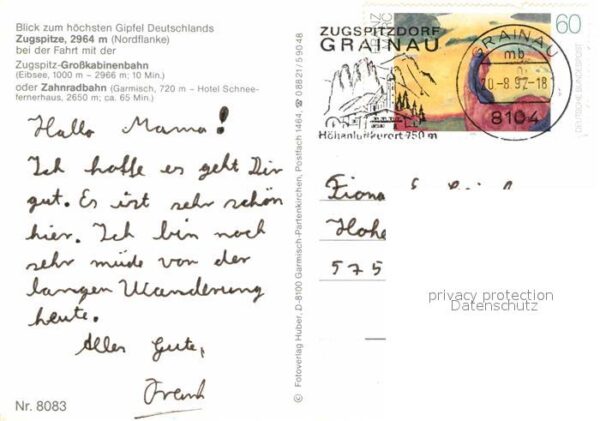 Blick zum höchsten Gipfel Deutschlands
Zugspitze, 2964 m (Nordflanke)
bei der Fahrt mit der
Zugspitz-Großkabinenbahn
(Eibsee, 1000 m – 2966 m; 10 Min.)
oder Zahnradbahn (Garmisch, 720 m – Hotel Schnee-
fernerhaus, 2650 m; ca. 65 Min.)
Hallo Mama!
Ich hoffe es geht Dir
gut. Es ist sehr schön
hier. Ich bin noch
sehr müde von der
langen Wanderung
heute.
Alles Gute,
Frank
Nr. 8083
© Fotoverlag Huber, D-8100 Garmisch-Partenkirchen, Postfach 1464, ☎ 08821/59048
ZUGSPITZDORF
GRAINAU
Höhenluftkurort 750 m
GRAINAU
mb
20.-8.92-18
8104
60
DEUTSCHE BUNDESPOST
Fiona
Hohe
575
privacy protection
Datenschutz